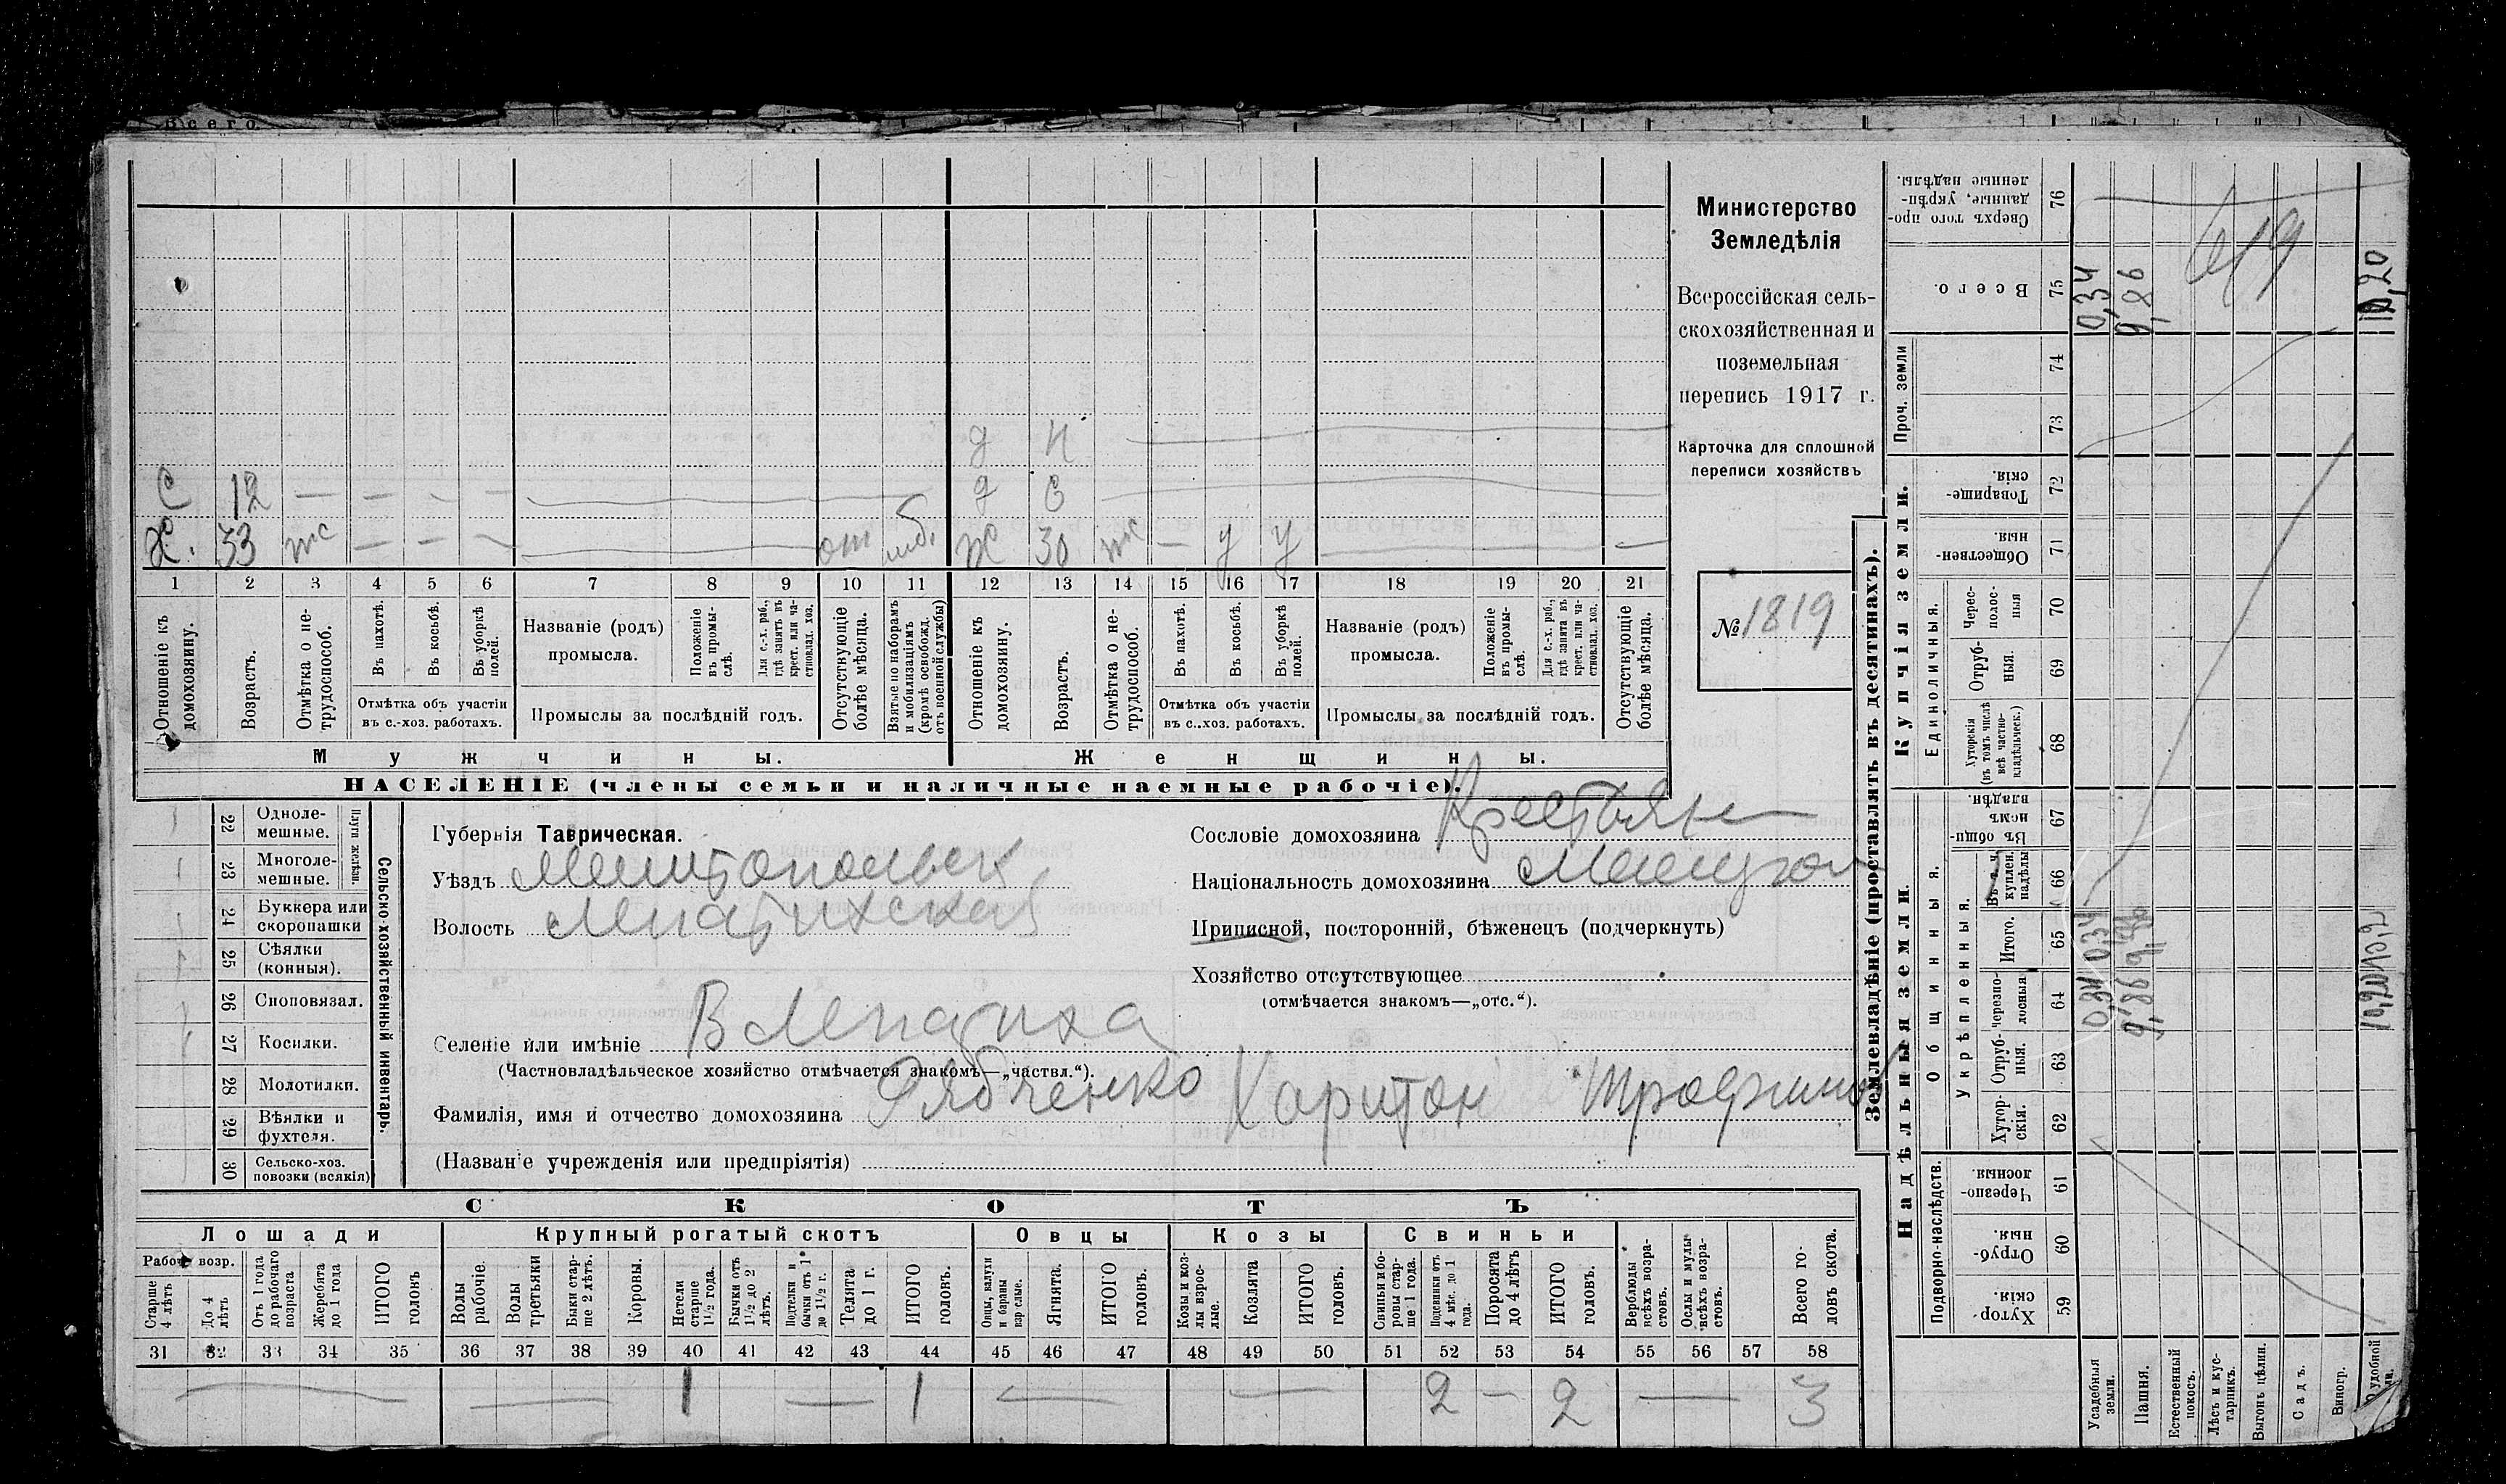 Всего
Министерство
Земледѣлія
Всероссійская сель-
скохозяйственная и
поземельная
перепись 1917 г.
Карточка для сплошной
переписи хозяйствъ
№ 1819
д Н
С 12 — — - — д 6
Х. 33 тс — - - от моб. ж 30 тс — у у —
1 2 3 4 5 6 7 8 9 10 11 12 13 14 15 16 17 18 19 20 21
Отношеніе къ домохозяину.
Возрастъ.
Отмѣтка о не-трудоспособ.
Въ пахотѣ.
Въ косьбѣ.
Въ уборкѣ полей.
Отмѣтка объ участіи въ с.-хоз. работахъ.
Названіе (родъ) промысла.
Положеніе въ промы-слѣ.
Для с.-х. раб., гдѣ занятъ въ крест. или ча-стновлад. хоз.
Промыслы за послѣдній годъ.
Отсутствующіе болѣе мѣсяца.
Взятые по наборамъ и мобилизаціямъ (кромѣ освобожд. отъ военной службы)
Отношеніе къ домохозяину.
Возрастъ.
Отмѣтка о не-трудоспособ.
Въ пахотѣ.
Въ косьбѣ.
Въ уборкѣ полей.
Отмѣтка объ участіи въ с..хоз. работахъ.
Названіе (родъ) промысла.
Положеніе въ промы-слѣ.
Для с.-х. раб., гдѣ занята въ крест. или ча-стновлад. хоз.
Промыслы за послѣдній годъ.
Отсутствующіе болѣе мѣсяца.
Мужчины. Женщины.
НАСЕЛЕНІЕ (члены семьи и наличные наемные рабочіе).
22 Одноле-мешные.
23 Многоле-мешные.
Плуги желѣзн.
24 Буккера или скоропашки
25 Сѣялки (конныя).
26 Сноповязал.
27 Косилки.
28 Молотилки.
29 Вѣялки и фухтеля.
30 Сельско-хоз. повозки (всякія)
Сельско-хозяйственный инвентарь.
Губернія Таврическая.
Уѣздъ Мелитопольск
Волость Лепатихская
Сословіе домохозяина Крестьян
Національность домохозяина Малорос
Приписной, посторонній, бѣженецъ (подчеркнуть)
Хозяйство отсутствующее
(отмѣчается знакомъ—„отс.“).
Селеніе или имѣніе В Лепатиха
(Частновладѣльческое хозяйство отмѣчается знакомъ—„частвл.“).
Фамилія, имя и отчество домохозяина Рябченко Харитон Трофимов
(Названіе учрежденія или предпріятія)
СКОТЪ
Лошади Крупный рогатый скотъ Овцы Козы Свиньи
Рабоч. возр.
Старше 4 лѣтъ
До 4 лѣтъ
Отъ 1 года до рабочаго возраста
Жеребята до 1 года
ИТОГО головъ
Волы рабочіе.
Волы третьяки
Быки стар-ше 2 лѣтъ.
Коровы.
Нетели старше 1½ года.
Бычки отъ 1½ до 2 лѣтъ.
Подтелки и бычки отъ 1 до 1½ г.
Телята до 1 г.
ИТОГО головъ.
Овцы, валухи и бараны взрослые.
Ягнята.
ИТОГО головъ.
Козы и коз-лы взрос-лые.
Козлята
ИТОГО головъ.
Свиньи и бо-ровы стар-ше 1 года.
Подсвинки отъ 4 мѣс. до 1 года.
Поросята до 4 лѣтъ
ИТОГО головъ.
Верблюды всѣхъ возра-стовъ.
Ослы и мулы всѣхъ возра-стовъ.
Всего го-ловъ скота.
31 32 33 34 35 36 37 38 39 40 41 42 43 44 45 46 47 48 49 50 51 52 53 54 55 56 57 58
— — 1 — 1 — — 2 — 2 — 3
Землевладѣніе (проставлять въ десятинахъ).
Купчія земли.
Надѣльныя земли.
Проч. земли
Единоличныя.
Общинныя.
Укрѣпленныя.
Подворно-наслѣдств.
Сверхъ того про-данные, укрѣп-ленные надѣлы. 76
Всего. 75
74
73
Товарище-скія. 72
Обществен-ныя. 71
Черес-полос-ныя 70
Отруб-ныя. 69
Хуторскія (въ томъ числѣ всѣ частно-владѣльческ.) 68
Въ общи-номъ владѣн. 67
Въ т. ч. куплен. надѣлы 66
Итого. 65
Черезпо-лосныя 64
Отруб-ныя. 63
Хутор-скія. 62
Черезпо-лосныя. 61
Отруб-ныя. 60
Хутор-скія. 59
Усадебныя земли.
Пашня.
Естественный покосъ.
Лѣсъ и кус-тарникъ.
Выгонъ цѣлин.
Садъ.
Виногр.
0,34
9,86
10,20
619
0,34 0,34
9,86 9,86
10,20 10,2